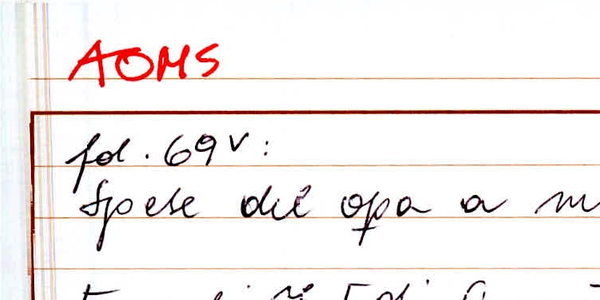 AOMS
fol. 69v:
Spese di opa a m